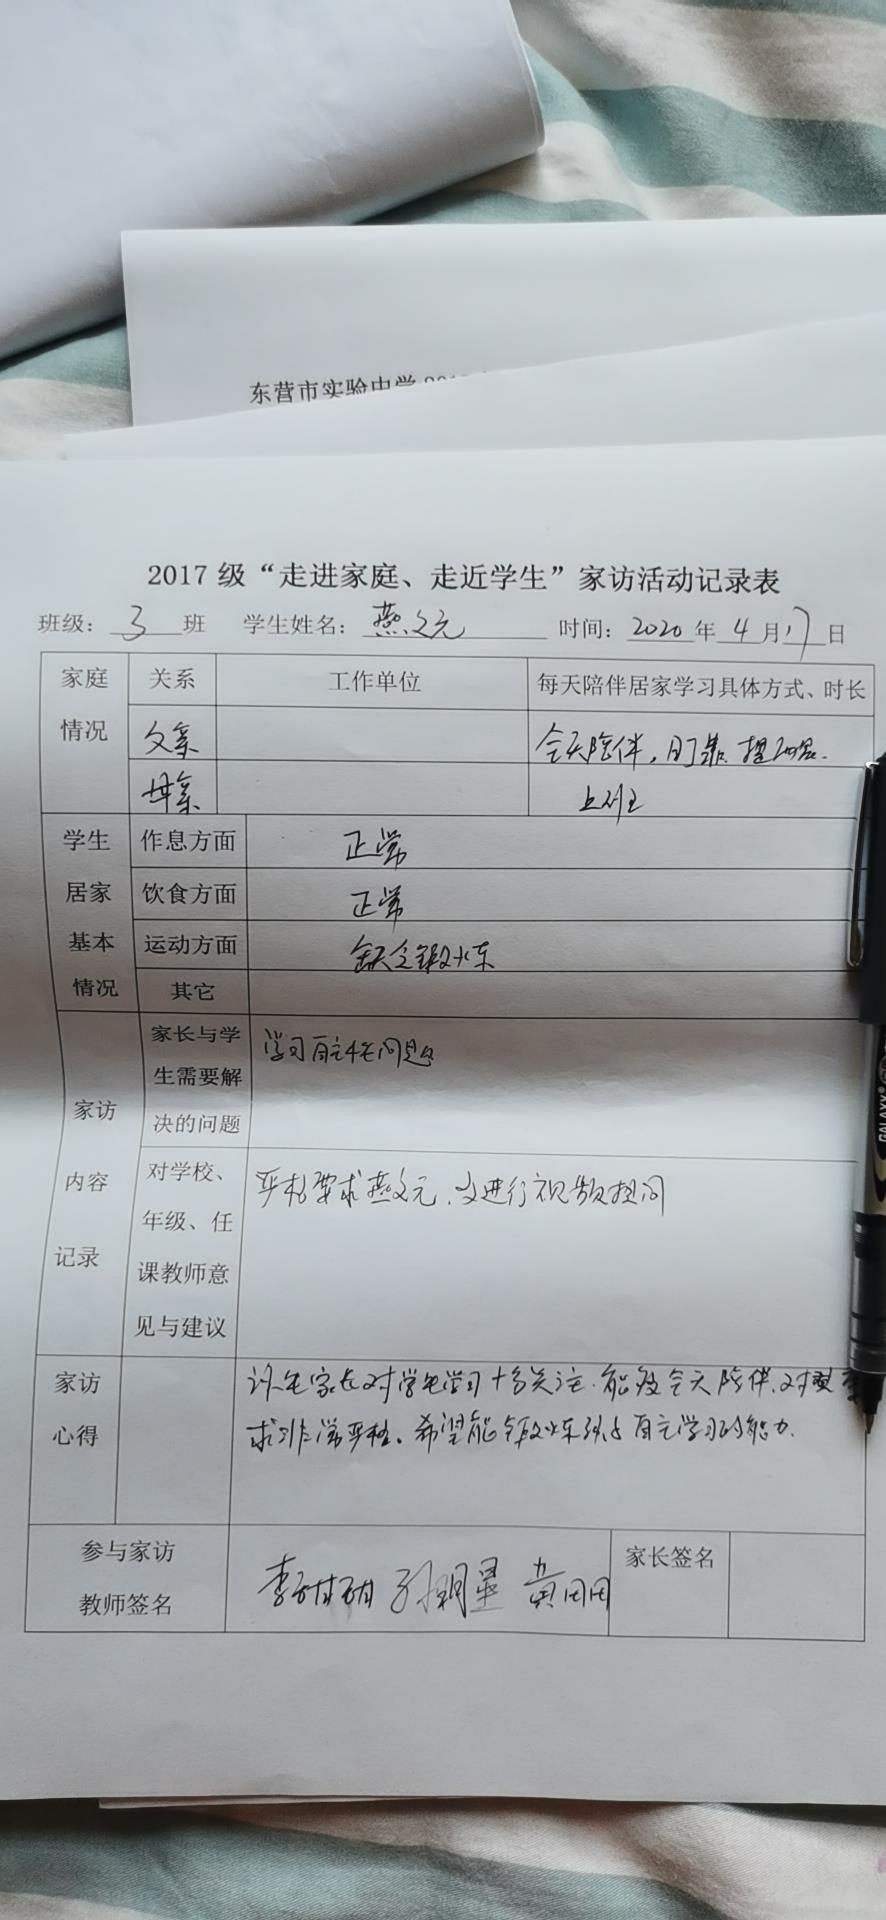 东营市实验中学
2017 级“走进家庭、走近学生”家访活动记录表
班级： 3 班 学生姓名： 燕文元 时间： 2020 年 4 月 17 日
家庭情况 关系 工作单位 每天陪伴居家学习具体方式、时长
父亲 全天陪伴，盯靠.
母亲 上班
学生居家基本情况 作息方面 正常
饮食方面 正常
运动方面 缺乏锻炼
其它
家访内容记录
家长与学生需要解决的问题 学习自主性问题
对学校、年级、任课教师意见与建议 严格要求燕文元，多进行视频提问
家访心得 该生家长对学生学习十分关注，能够全天陪伴，对其要
求非常严格。希望能锻炼孩子自主学习的能力.
参与家访教师签名 李甜甜 孙明星 黄田田 家长签名
GALAXY